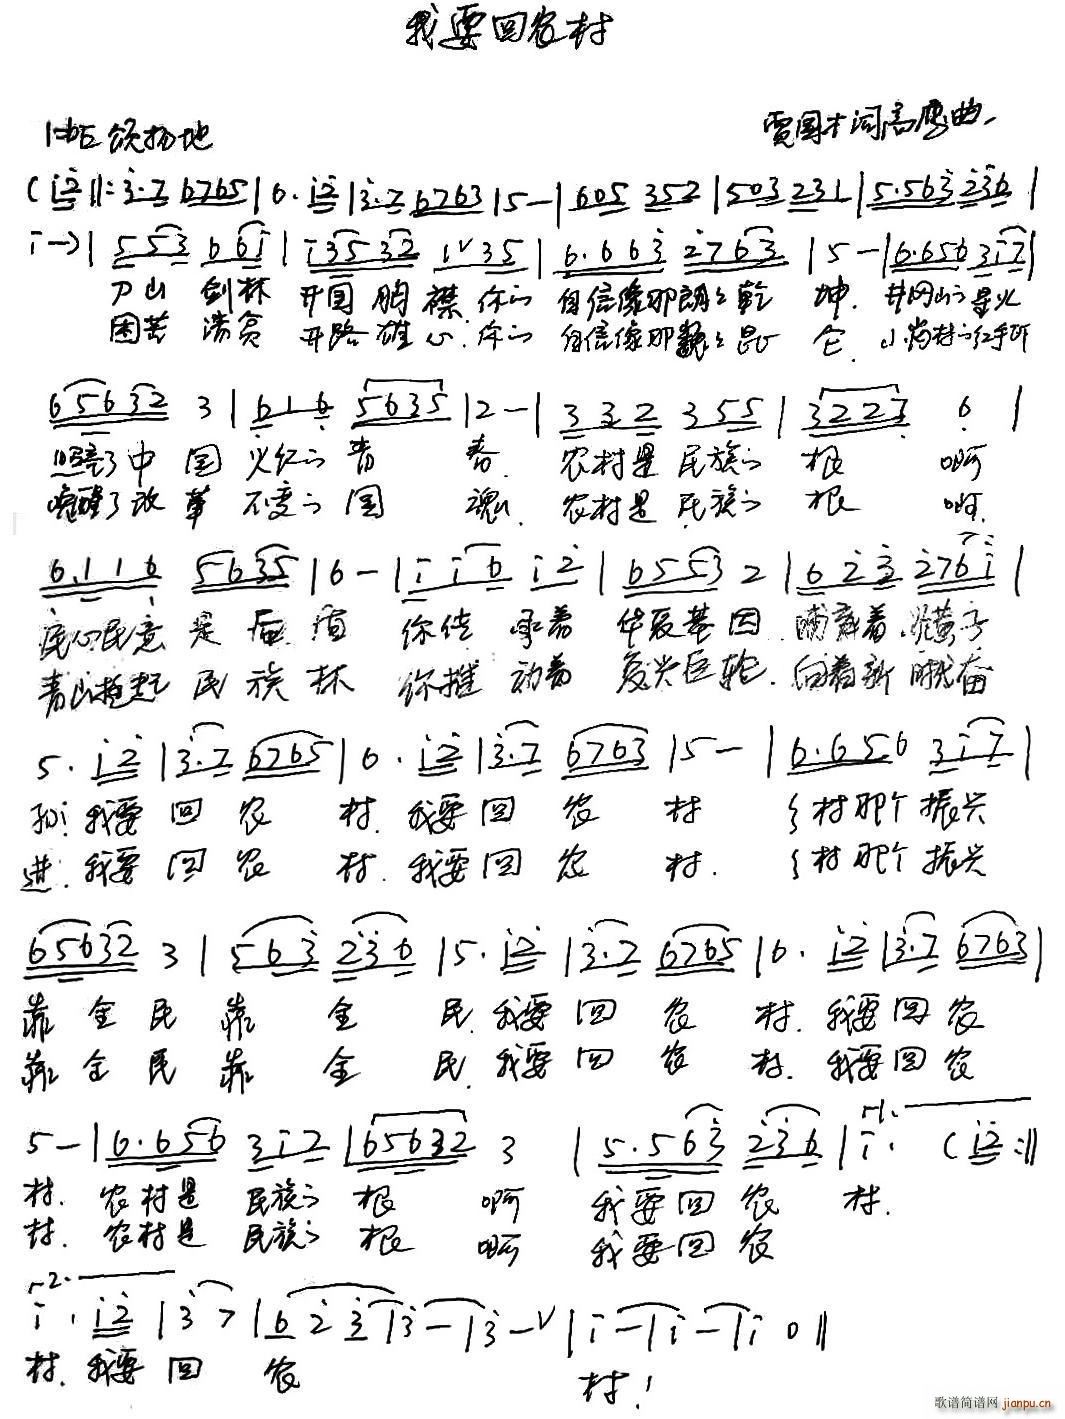 我要回农村
1=bE 颂扬地
贾国才词 高鹰曲
(i2‖:3·7 6765|6·i2|3·7 6763|5-|605 352|503 231|5·563 236|
i-)|553 66i|i3532 1∨35|6·663 2763|5-|6·656 3i7|
刀山 剑林 开国 胸襟.你的 自信像那朗朗乾 坤.井冈山的星火
困苦 清贫 开路 雄心.你的 自信像那巍巍昆 仑.小岗村的红手印
65632 3|616 5635|2-|332 355|3227 6|
照亮了中 国 火红的 青 春. 农村是 民族的 根 啊
唤醒了改 革 不变的 国 魂. 农村是 民族的 根 啊.
6·116 5635|6-|ii6 i2|6553 2|623 276i|
民心民意 是 你传 承着 华夏基因 哺育着 炎黄子
青山挽起 民 族 林 你推 动着 复兴巨轮.向着新 时代奋
5·i2|3·7 6765|6·i2|3·7 6763|5-|6·656 3i7|
孙! 我要 回 农 村.我要 回 农 村 乡村那个 振兴
进.我要 回 农 村.我要 回 农 村. 乡村那个 振兴
65632 3|563 236|5·i2|3·7 6765|6·i2|3·7 6763|
靠 全 民 靠 全 民.我要 回 农 村.我要 回 农
靠 全 民 靠 全 民.我要 回 农 村.我要 回 农
5-|6·656 3i2|65632 3|5·563 236|i· (i2:‖
村. 农村是 民族的 根 啊 我要回 农 村.
村. 农村是 民族的 根 啊 我要回 农
i·i2|3 7|623|3-|3-∨|i-|i-|i 0‖
村.我要 回 农 村!
歌谱简谱网 jianpu.cn